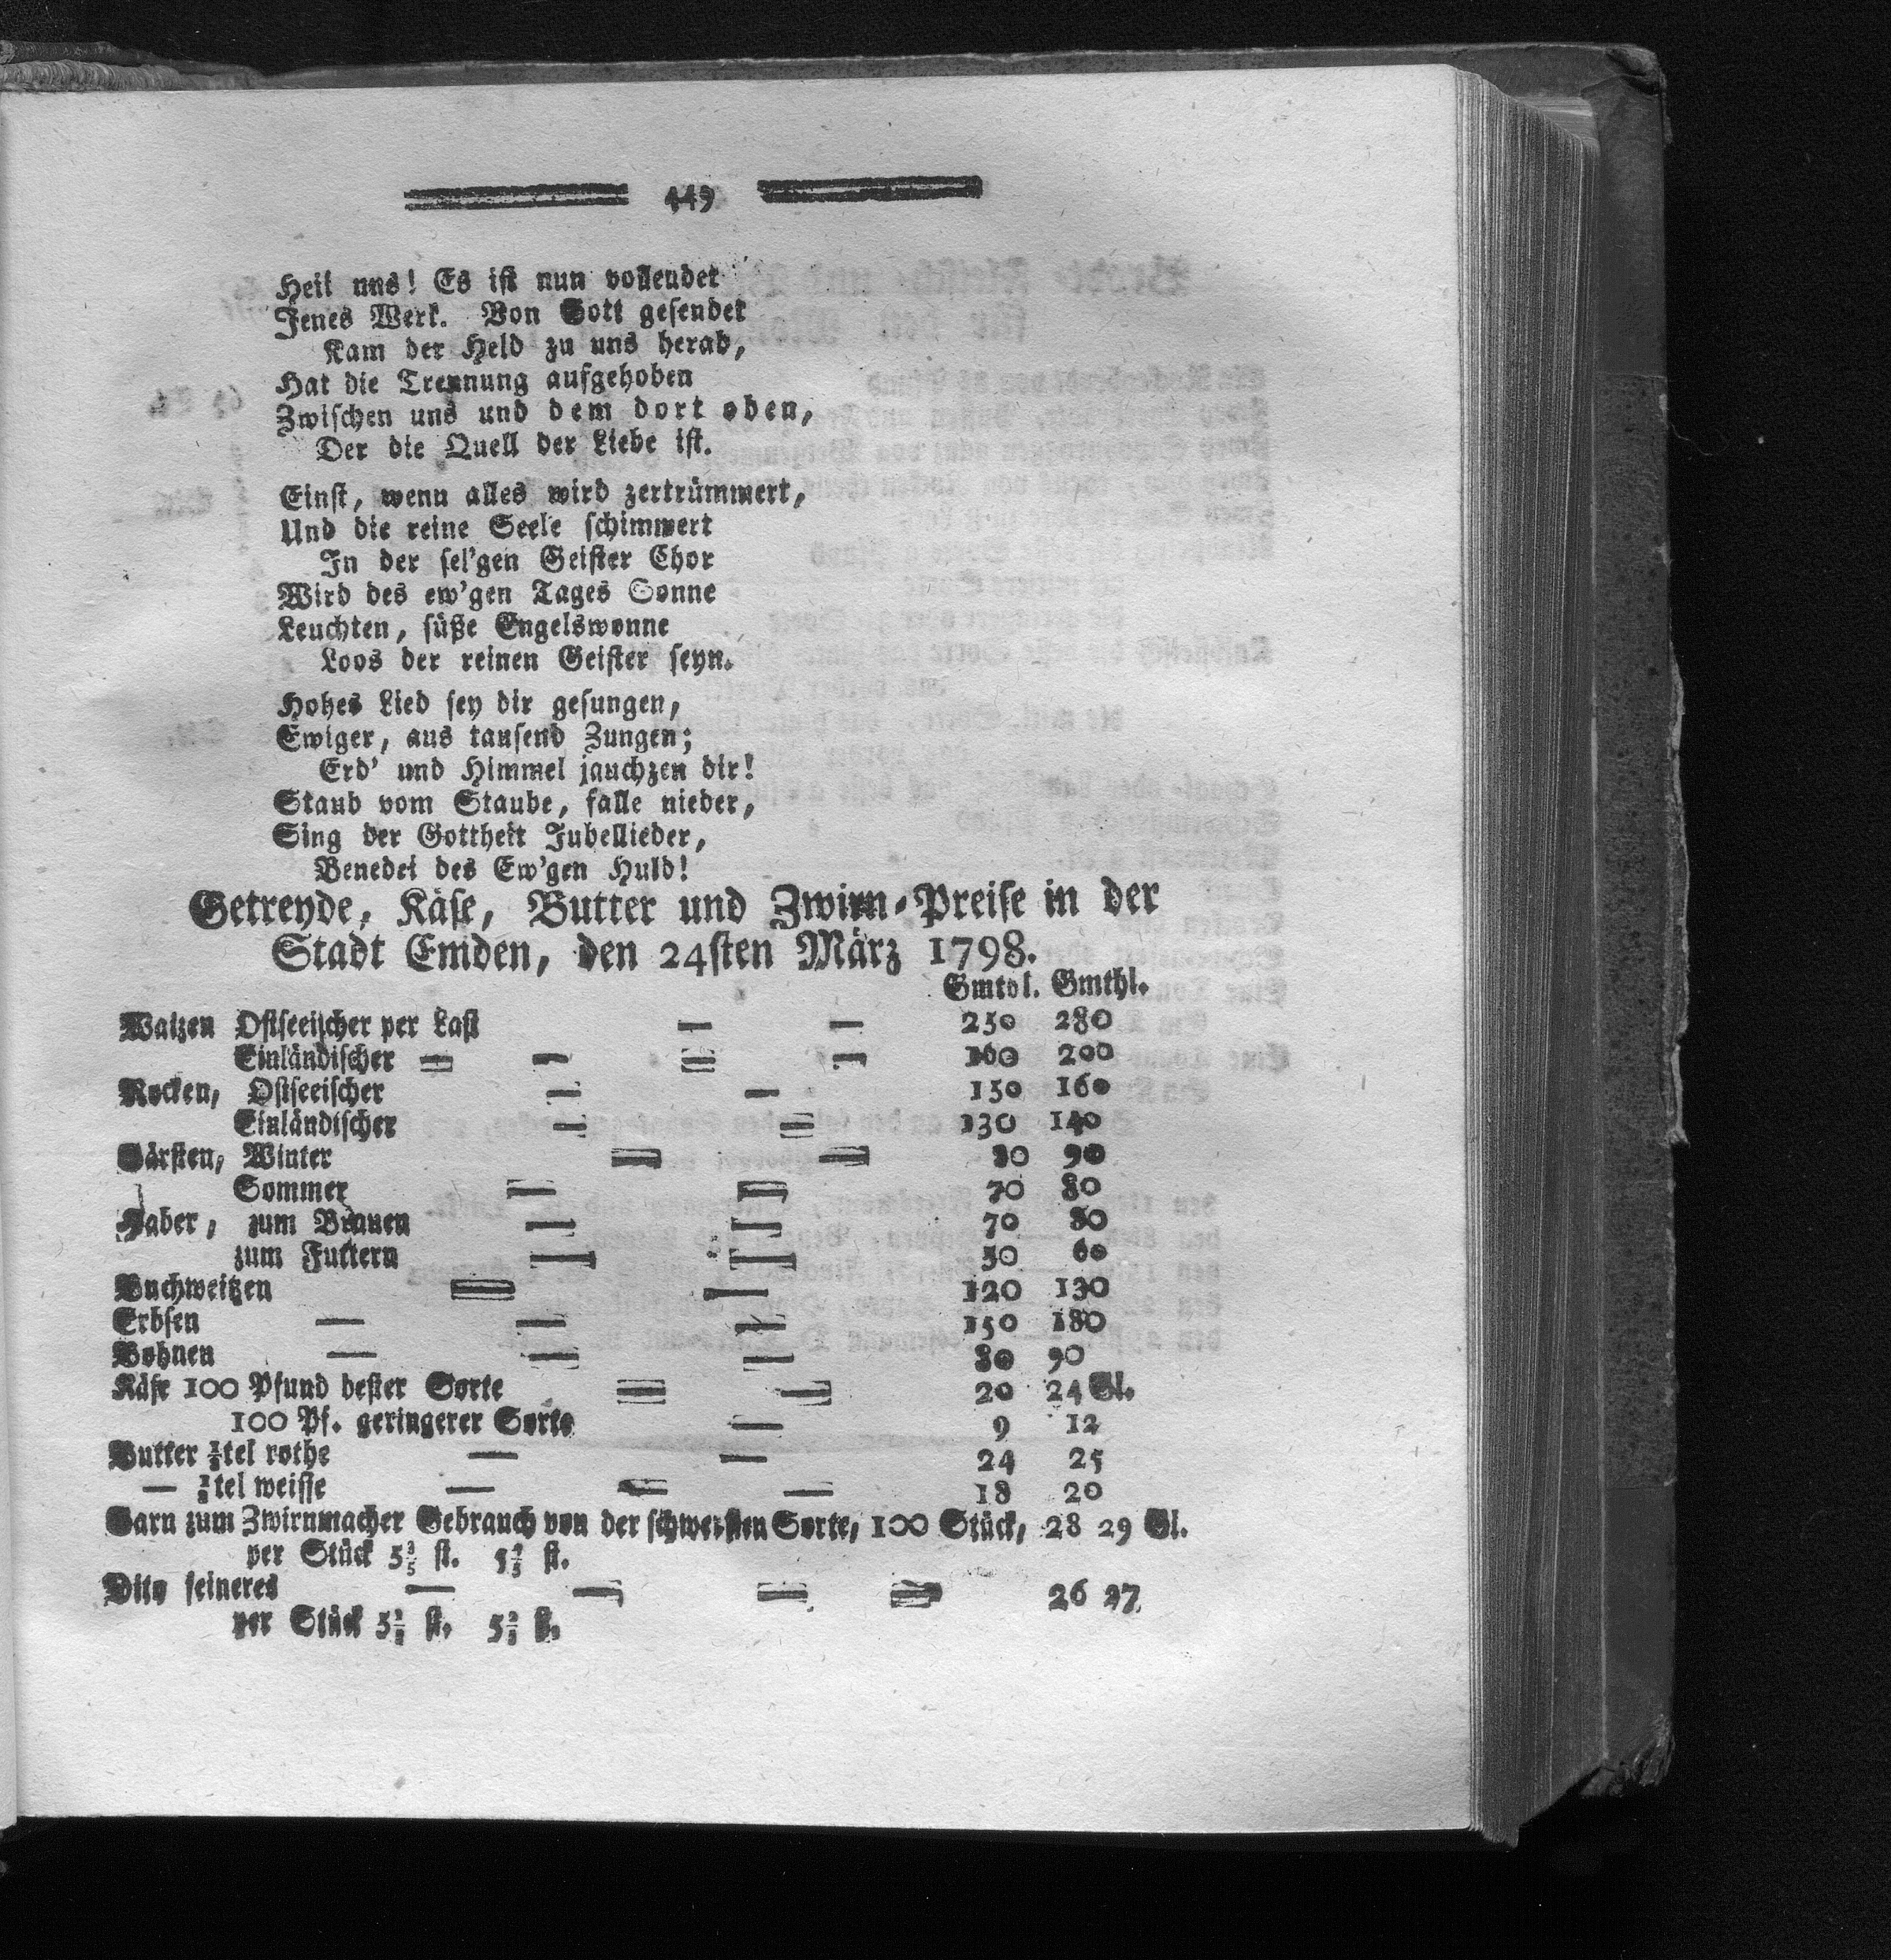 449
Heil uns! Es ist nun vollendet
Jenes Werk. Von Gott gesendet
Kam der Held zu uns herab,
Hat die Trennung aufgehoben
Zwischen uns und dem dort oben,
Der die Quell der Liebe ist.
Einst, wenn alles wird zertrümmert,
Und die reine Seele schimmert
In der sel'gen Geister Chor
Wird des ew'gen Tages Sonne
Leuchten, süße Engelswonne
Loos der reinen Geister seyn.
Hohes Lied sey dir gesungen,
Ewiger, aus tausend Zungen;
Erd' und Himmel jauchzen dir!
Staub vom Staube, falle nieder,
Sing der Gottheit Jubellieder,
Benedei des Ew'gen Huld!
Getreyde, Käse, Butter und Zwirn-Preise in der
Stadt Emden, den 24sten März 1798.
Gmthl. Gmthl.
Waizen Ostseeischer per Last — — 250 280
Einländischer — — — — 160 200
Rocken, Ostseeischer — — 150 160
Einländischer — — 130 140
Gärsten, Winter — — 80 90
Sommer — — 70 80
Haber, zum Brauen — — 70 80
zum Futtern — — 50 60
Buchweitzen — — 120 130
Erbsen — — — 150 180
Bohnen — — — 80 90
Käse 100 Pfund bester Sorte — — 20 24 Gl.
100 Pf. geringerer Sorte — 9 12
Butter tel rothe — — 24 25
— tel weisse — — — 18 20
Garn zum Zwirnmacher Gebrauch von der schwersten Sorte, 100 Stück, 28 29 Gl.
per Stück 5 st. 5 st.
Dito feineres — — — — 26 27
per Stück 5 st. 5 st.